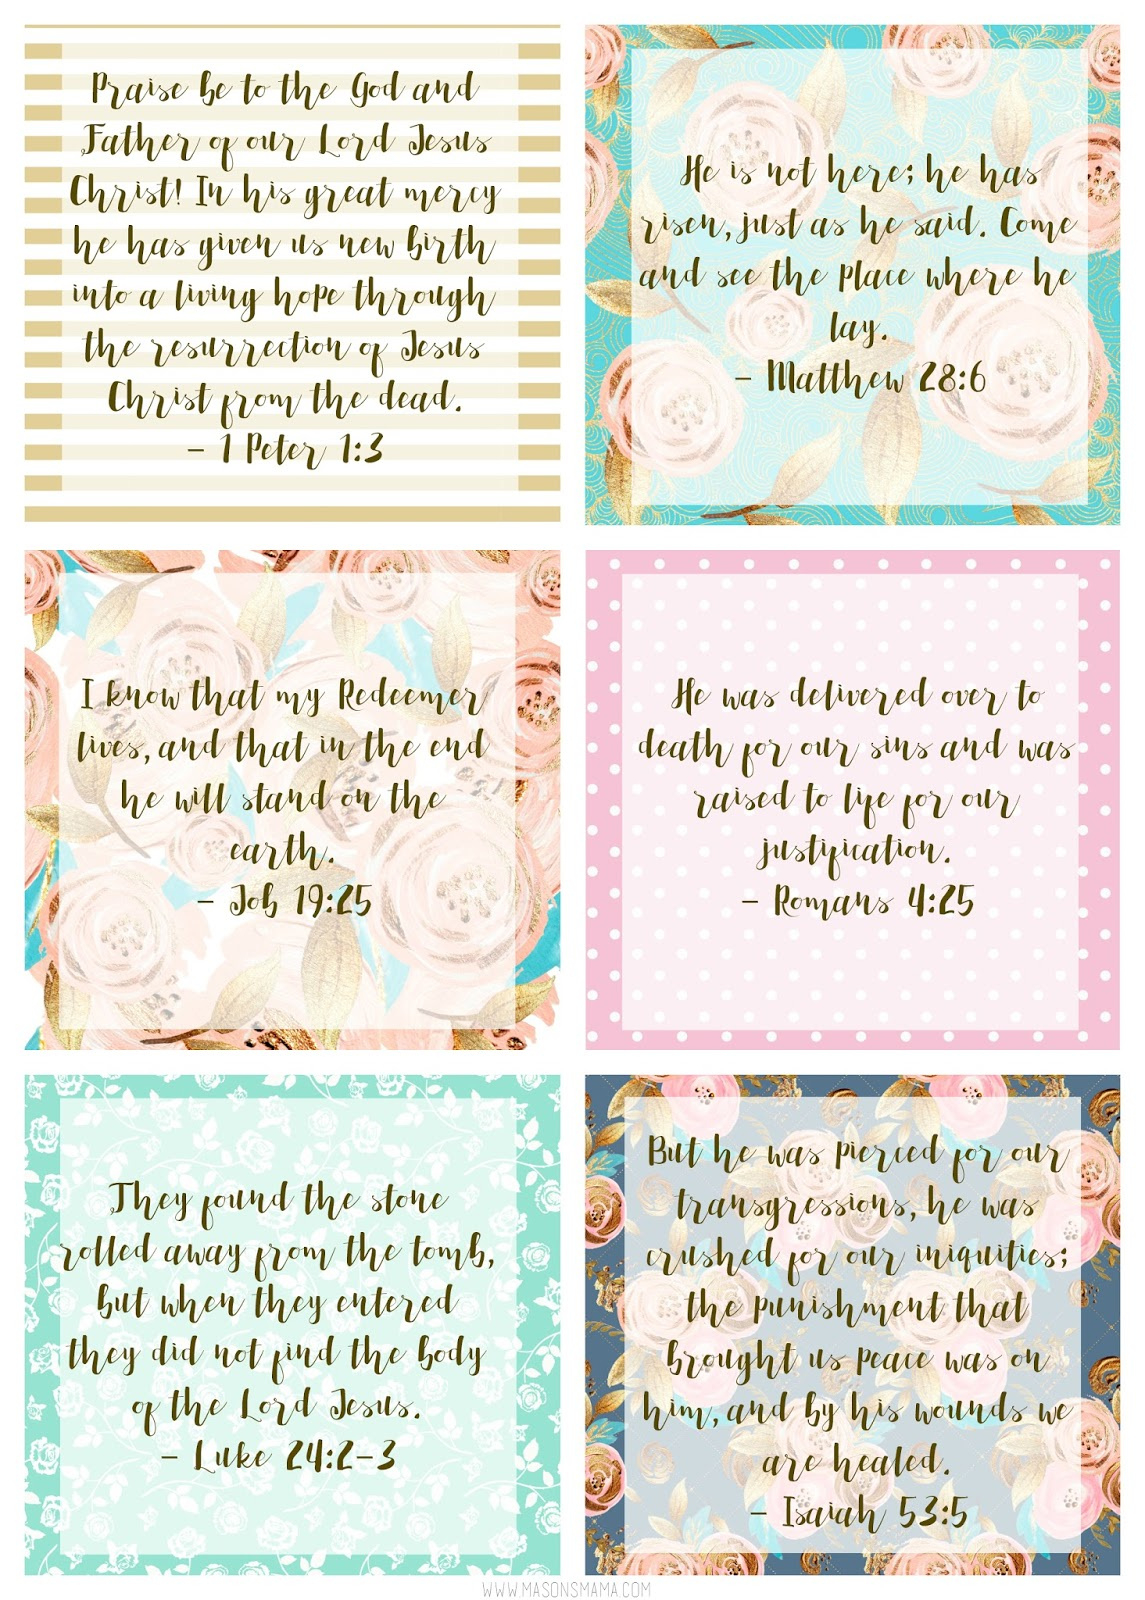 Praise be to the God and
Father of our Lord Jesus
Christ! In his great mercy
he has given us new birth
into a living hope through
the resurrection of Jesus
Christ from the dead.
- 1 Peter 1:3
He is not here; he has
risen, just as he said. Come
and see the place where he
lay.
- Matthew 28:6
I know that my Redeemer
lives, and that in the end
he will stand on the
earth.
- Job 19:25
He was delivered over to
death for our sins and was
raised to life for our
justification.
- Romans 4:25
They found the stone
rolled away from the tomb,
but when they entered
they did not find the body
of the Lord Jesus.
- Luke 24:2-3
But he was pierced for our
transgressions, he was
crushed for our iniquities;
the punishment that
brought us peace was on
him, and by his wounds we
are healed.
- Isaiah 53:5
WWW.MASONSMAMA.COM